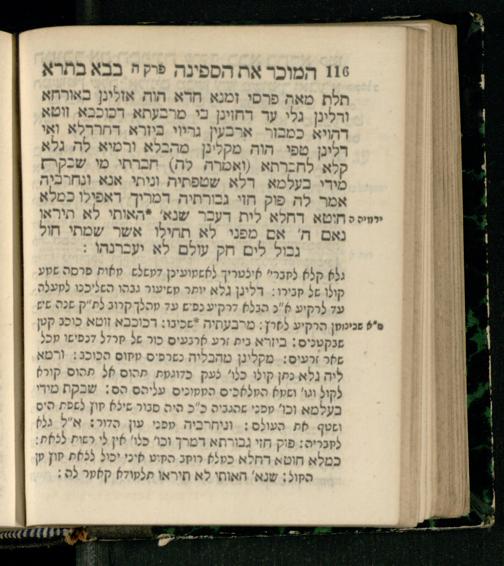 116 המוכר את הספינה פרק ה בבא בתרא
תלת מאה פרסי זמנא חדא הוה אזלינן באורחא
ודלינן גלי עד דחזינן בי מרבעתא דכוכבא זוטא
דהויא כמבזר ארבעין גריוי ביזרא דחרדלא ואי
דלינן טפי הוה מקלינן מהבלא ורמיא לה גלא
קלא לחברתא (ואמרה לה) חברתי מי שבקת
מידי בעלמא דלא שטפתיה וניתי אנא ונחרביה
אמר לה פוק חזי גבורתיה דמריך דאפילו כמלא
חוטא דחלא לית דעבר שנא' *האותי לא תיראו
ירמיה ה
נאם ה' אם מפני לא תחילו אשר שמתי חול
גבול לים חק עולם לא יעברנהו :
גלא קלא לחברי' איצטריך לאשמועינן דמשלש מאות פרסה שמע
קולו של חבירו : דלינן גלא יותר משיעור גבהו השליכנו למעלה
עד לרקיע א"כ הגלא לרקיע נפיש עד מהלך קרוב לת"ק שנה שיש
מן הרקיע לארץ : מרבעתיה *שכיבו : דכוכבא זוטא כוכב קטן
מ"א שכיבתו
שבקטנים : ביזרא בית זרע ארבעים כור של חרדל דנפישו מכל
שאר זרעים : מקלינן מהבליה נשרפים מחום הכוכב : ורמא
ליה גלא נתן קולו כלו' לעק כדוגמת תהום אל תהום קורא
לקול וגו' ושמא המלאכים הממונים עליהם הם : שבקת מידי
בעלמא וכו' מפני שהגביה כ"כ היה סבור שילא חוץ לשפת הים
ושטף את העולם : וניחרביה מפני עון הדור : א"ל גלא
לחבריה : פוק חזי גבורתא דמרך וכו' כלו' אין לי רשות לצאת :
כמלא חוטא דחלא כמלא רוחב החוט איני יכול לצאת חוץ מן
החול : שנא' האותי לא תיראו תלמודא קאמר לה :